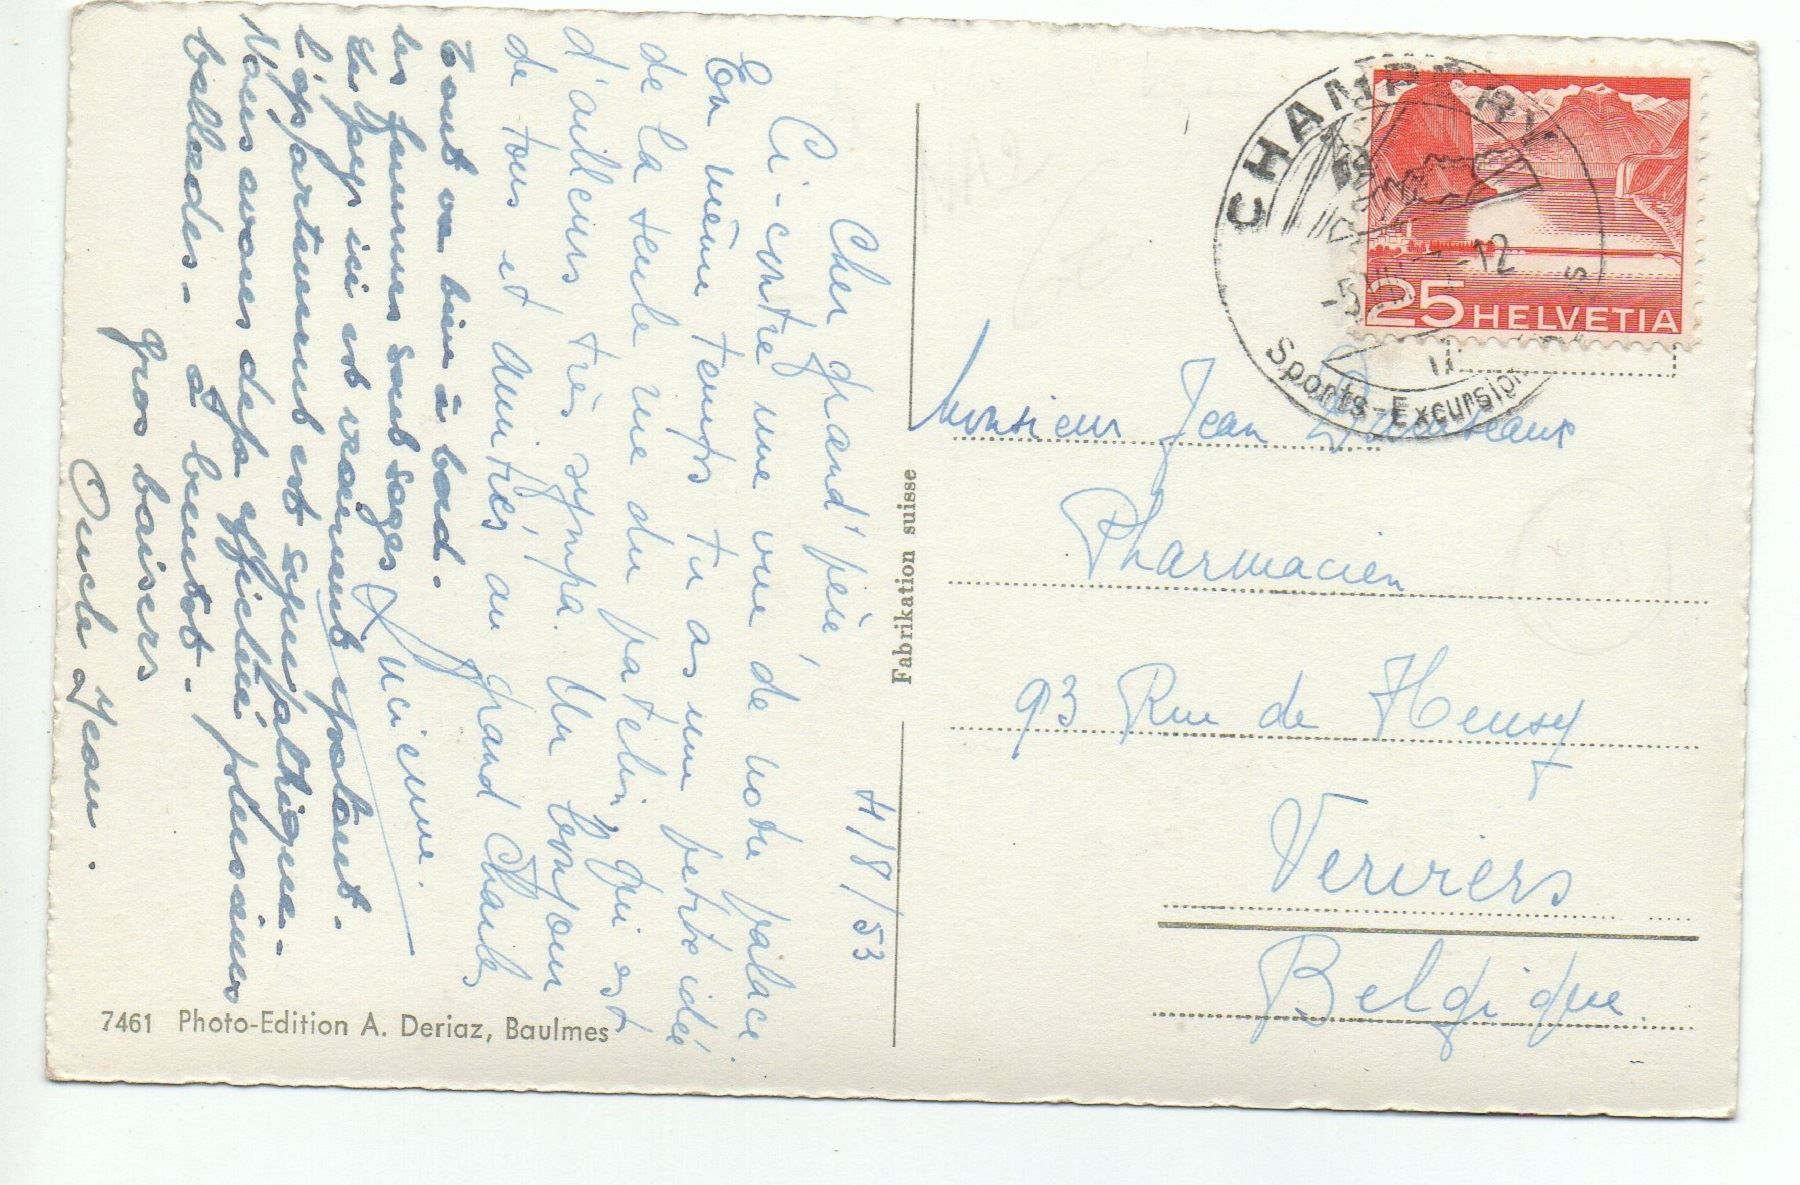 4/8/53
Cher grand'père
Ci-contre une vue de notre palace.
En même temps tu as une petite idée
de la seule vue du patelin qui est
d'ailleurs très sympa. Un bonjour
de tous et amitiés au grand Charles
Lucienne.
Tout va bien à bord.
les femmes sont sages
Le pays ici est vraiment épatant.
l'appartement est sympathique.
Nous avons déjà effectué plusieurs
ballades. à bientot.
Gros baisers
Oncle Jean.
7461 Photo-Edition A. Deriaz, Baulmes
Fabrikation suisse
CHAMPERY
-5.VIII -12
Sports-Excursions
25 HELVETIA
Monsieur Jean
Pharmacien
93 Rue de Heusy
Verviers
Belgique.